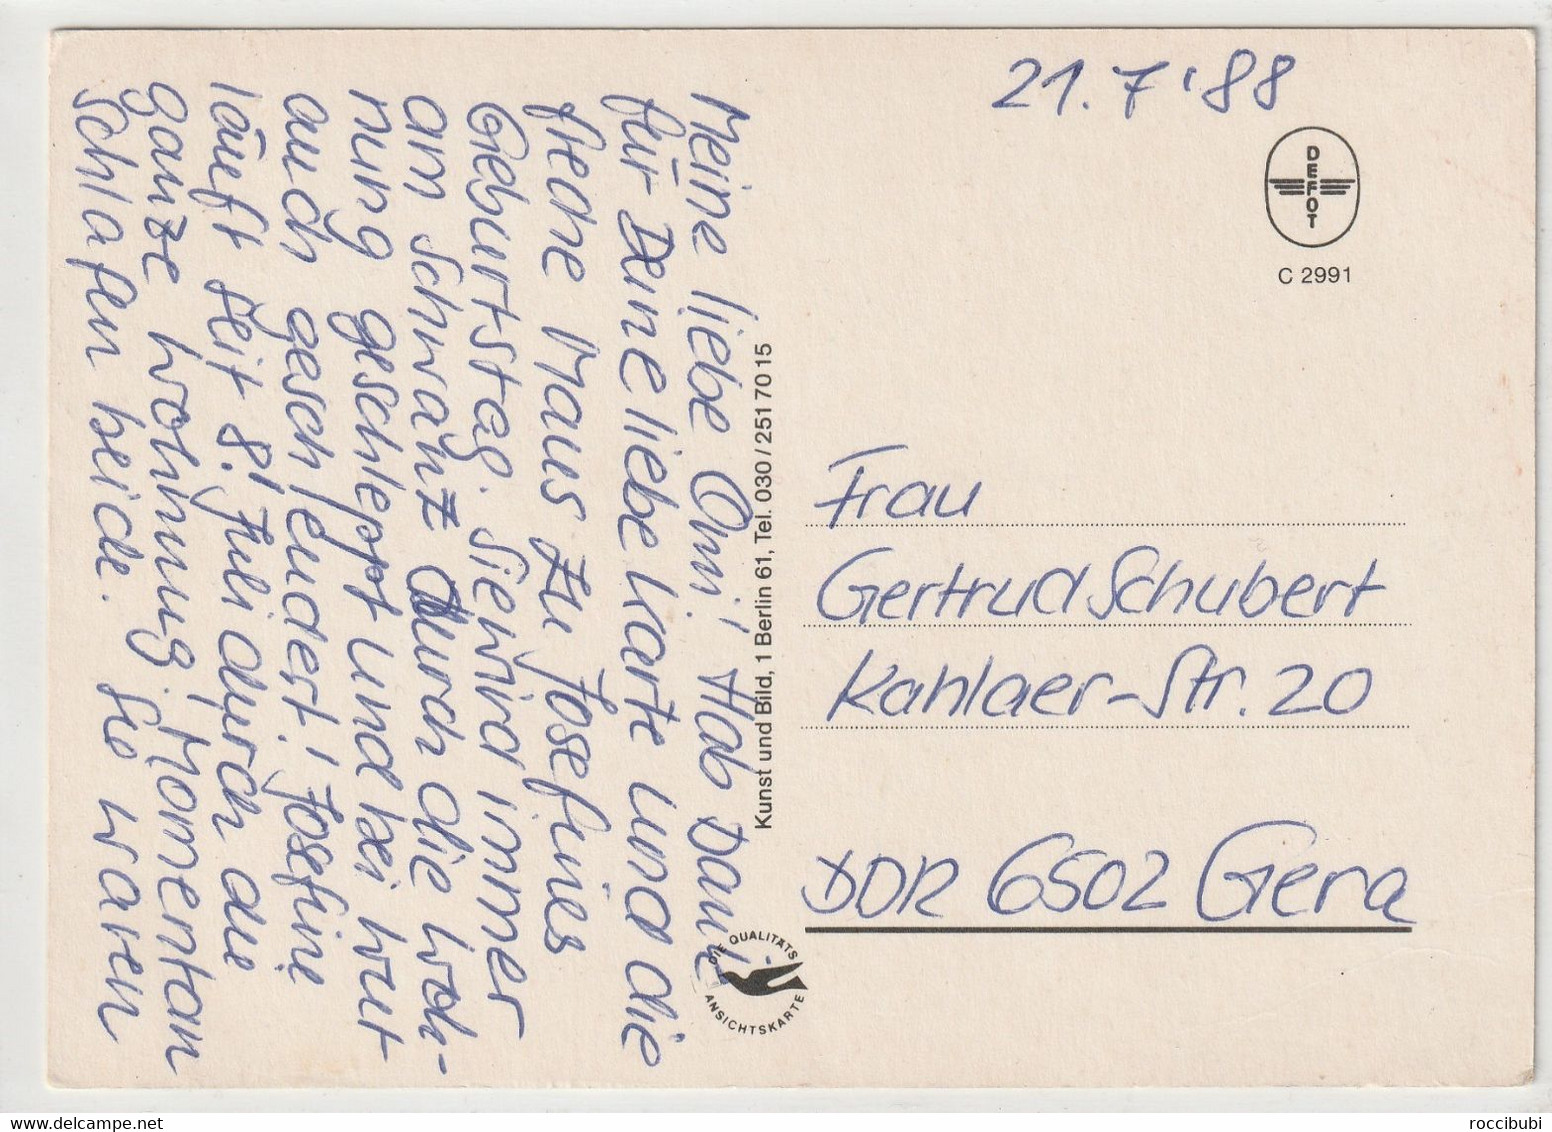 21. 7 '88
DEFOT
C 2991
Meine liebe Omi! Hab Dank
für Deine liebe Karte und die
freche Maus zu Josefines
Geburtstag. Sie wird immer
am Schwanz durch die Woh-
nung geschleppt und bei Wut
auch geschleudert! Josefine
läuft seit 8. Juli durch die
ganze Wohnung. Momentan
schlafen beide. Wo waren
Kunst und Bild, 1 Berlin 61, Tel. 030/251 70 15
DIE QUALITÄTS ANSICHTSKARTE
Frau
Gertrud Schubert
Kahlaer-Str. 20
DDR 6502 Gera
roccibubi